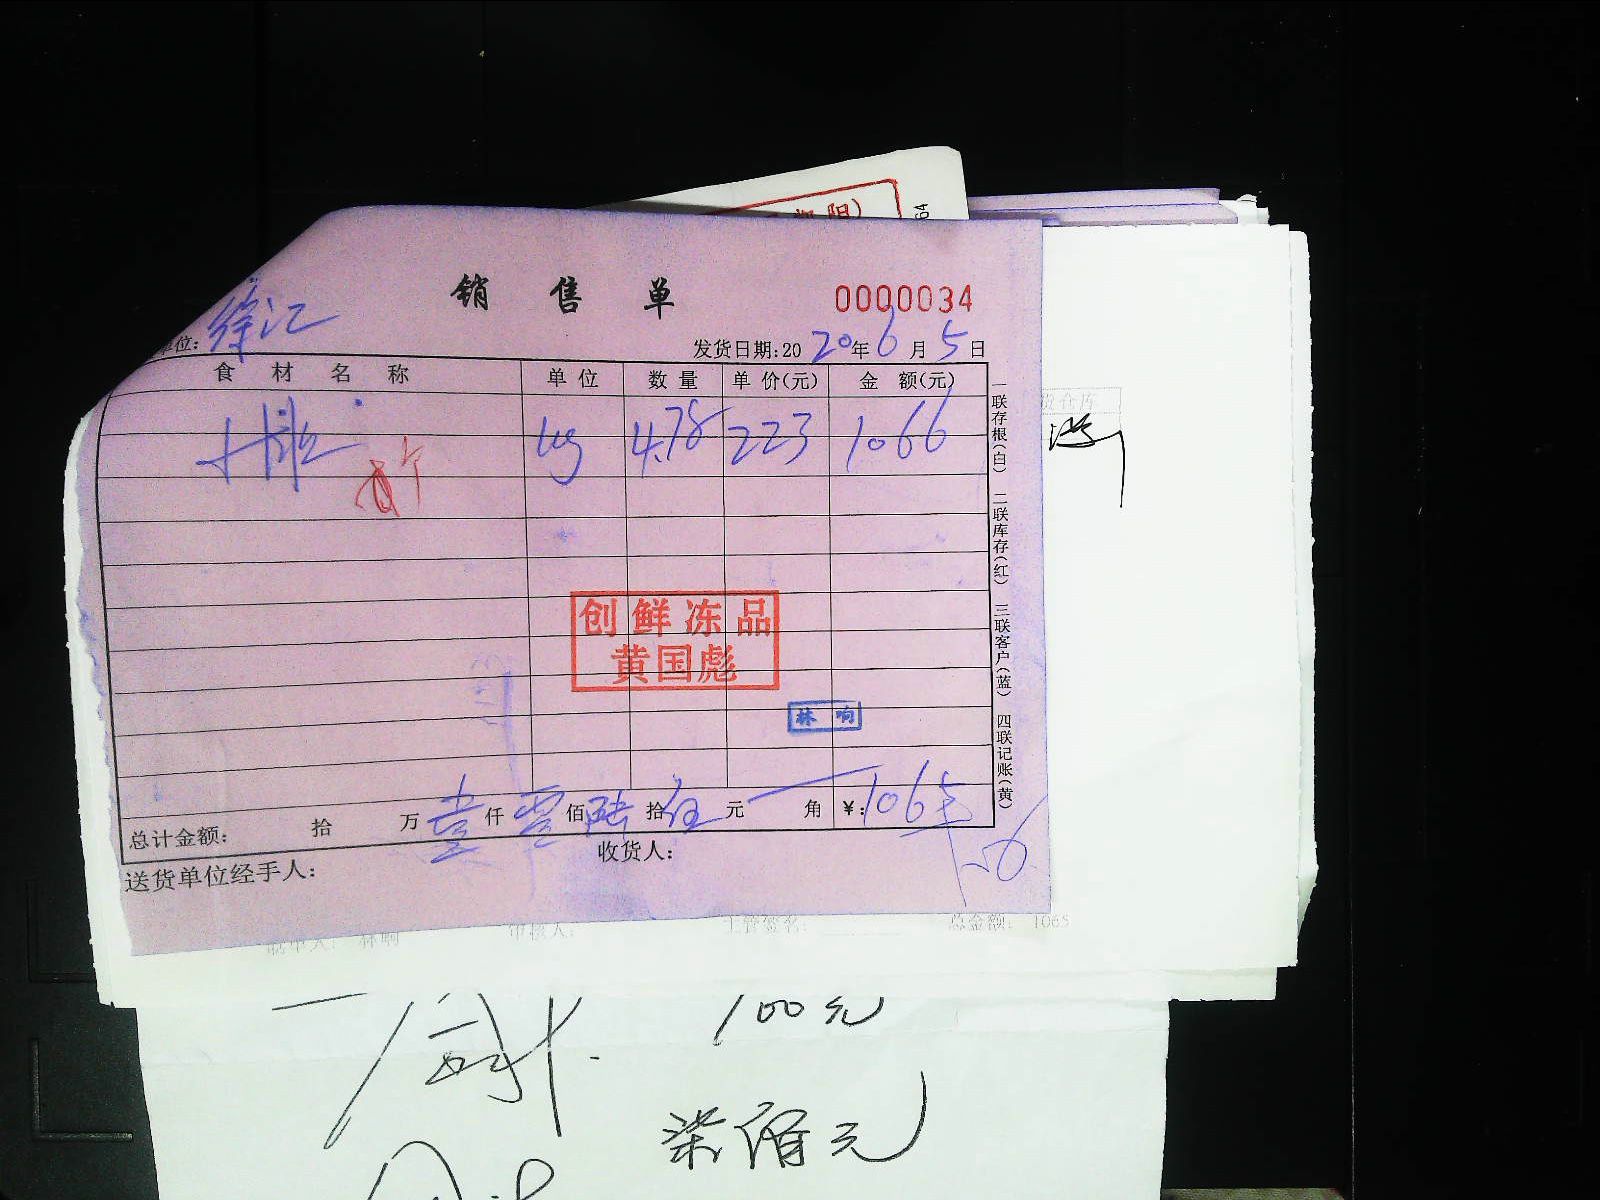 阳)
64
销售单
0000034
位: 徐汇
发货日期:2020年6月5日
食材名称 单位 数量 单价(元) 金额(元)
kg 4.78 223 1066
一联存根(白) 二联库存(红) 三联客户(蓝) 四联记账(黄)
创鲜冻品
黄国彪
林响
总计金额: 拾 万 壹仟 零佰 陆拾 伍元 角 ¥:1065
送货单位经手人:
收货人:
制单人: 林响 审核人: 主管签名: 总金额: 1065
100元
柒佰元